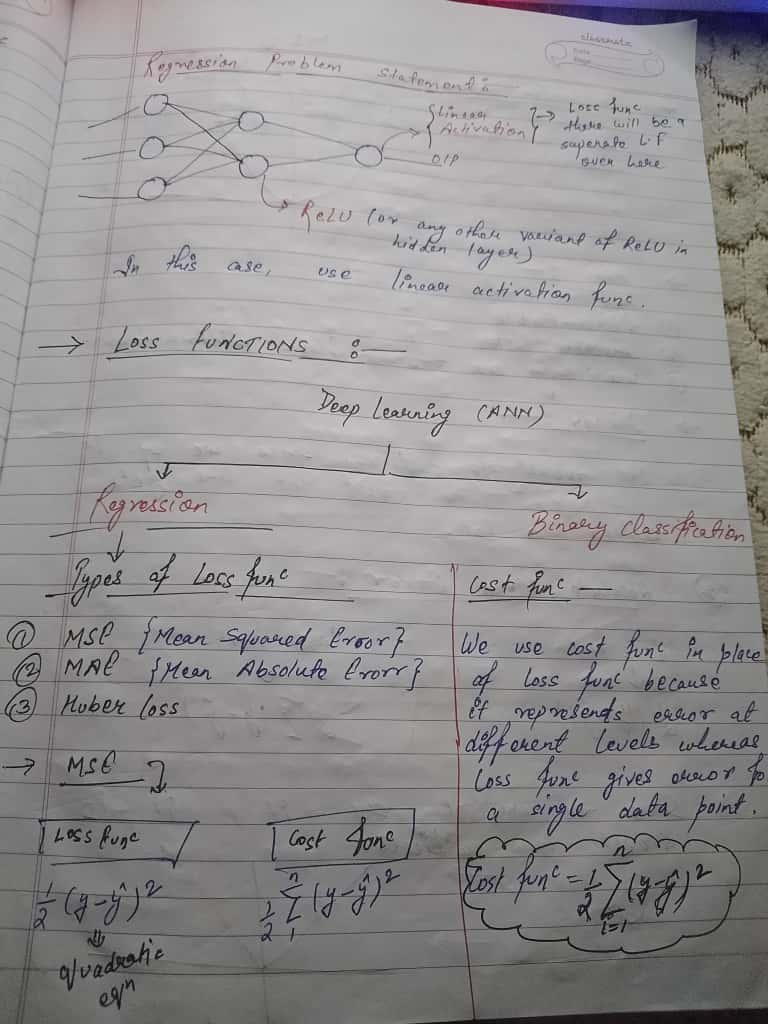 classmate
Date
Page
Regression Problem Statement:
{Linear Activation} → Loss func
there will be a
seperate L.F
over here
O/P
ReLU (or any other variant of ReLU in
hidden layer)
In this case, use linear activation func.
→ LOSS FUNCTIONS :—
Deep Learning (ANN)
Regression
Binary Classification
Types of Loss func
① MSE {Mean Squared Error}
② MAE {Mean Absolute Erorr}
③ Huber Loss
→ MSE
Loss func
Cost func
1/2 (y-ŷ)²
1/2 Σ (y-ŷ)²
n
1
quadratic
eqn
Cost func —
We use cost func in place
of loss func because
it represents error at
different levels whereas
loss func gives error
a single data point.
Cost func = 1/2 Σ (y-ŷ)²
n
i=1